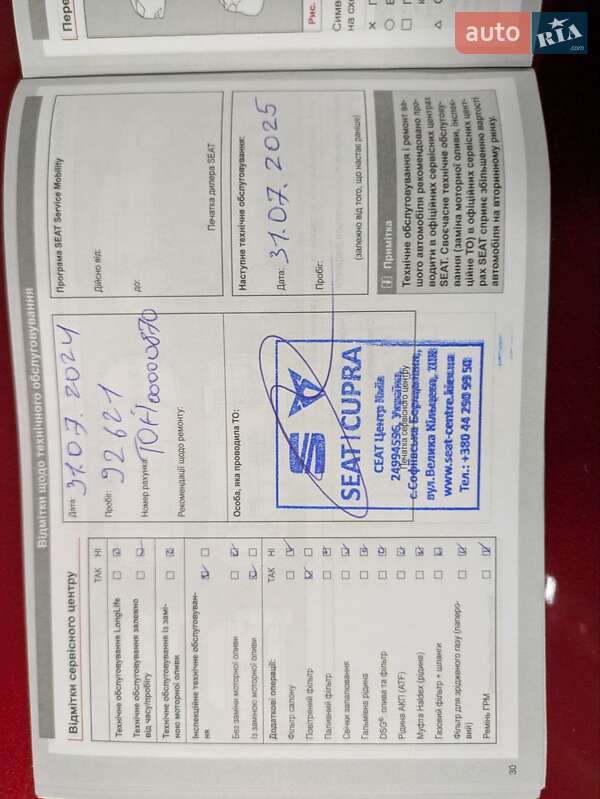 Відмітки щодо технічного обслуговування
Відмітки сервісного центру
ТАК НІ
Технічне обслуговування LongLife
Технічне обслуговування залежно
від часу/пробігу
Технічне обслуговування із замі-
ною моторної оливи
Інспекційне технічне обслуговуван-
ня
Без заміни моторної оливи
Із заміною моторної оливи
Додаткові операції:
ТАК НІ
Фільтр салону
Повітряний фільтр
Паливний фільтр
Свічки запалювання
Гальмівна рідина
DSG®: олива та фільтр
Рідина АКП (ATF)
Муфта Haldex (рідина)
Газовий фільтр + шланги
Фільтр для зрідженого газу (паперо-
вий)
Ремінь ГРМ
Дата: 31.07.2024
Пробіг: 92621
Номер рахунка: ТОН00000870
Рекомендації щодо ремонту:
Особа, яка проводила ТО:
SEAT | CUPRA
СЕАТ Центр Київ
24994596, Україна,
Печатка сервісного центру
с.Софіївська Борщагівка,
вул.Велика Кільцева,
www.seat-centre.kiev.ua
Тел.: +380 44 290 99 50
Програма SEAT Service Mobility
Дійсно від:
до:
Печатка дилера SEAT
Наступне технічне обслуговування:
Дата: 31.07.2025
Пробіг:
(залежно від того, що настає раніше)
Примітка
Технічне обслуговування і ремонт ва-
шого автомобіля рекомендовано про-
водити в офіційних сервісних центрах
SEAT. Своєчасне технічне обслугову-
вання (заміна моторної оливи, інспек-
ційне ТО) в офіційних сервісних цент-
рах SEAT сприяє збільшенню вартості
автомобіля на вторинному ринку.
30
Рис.
auto RIA .com